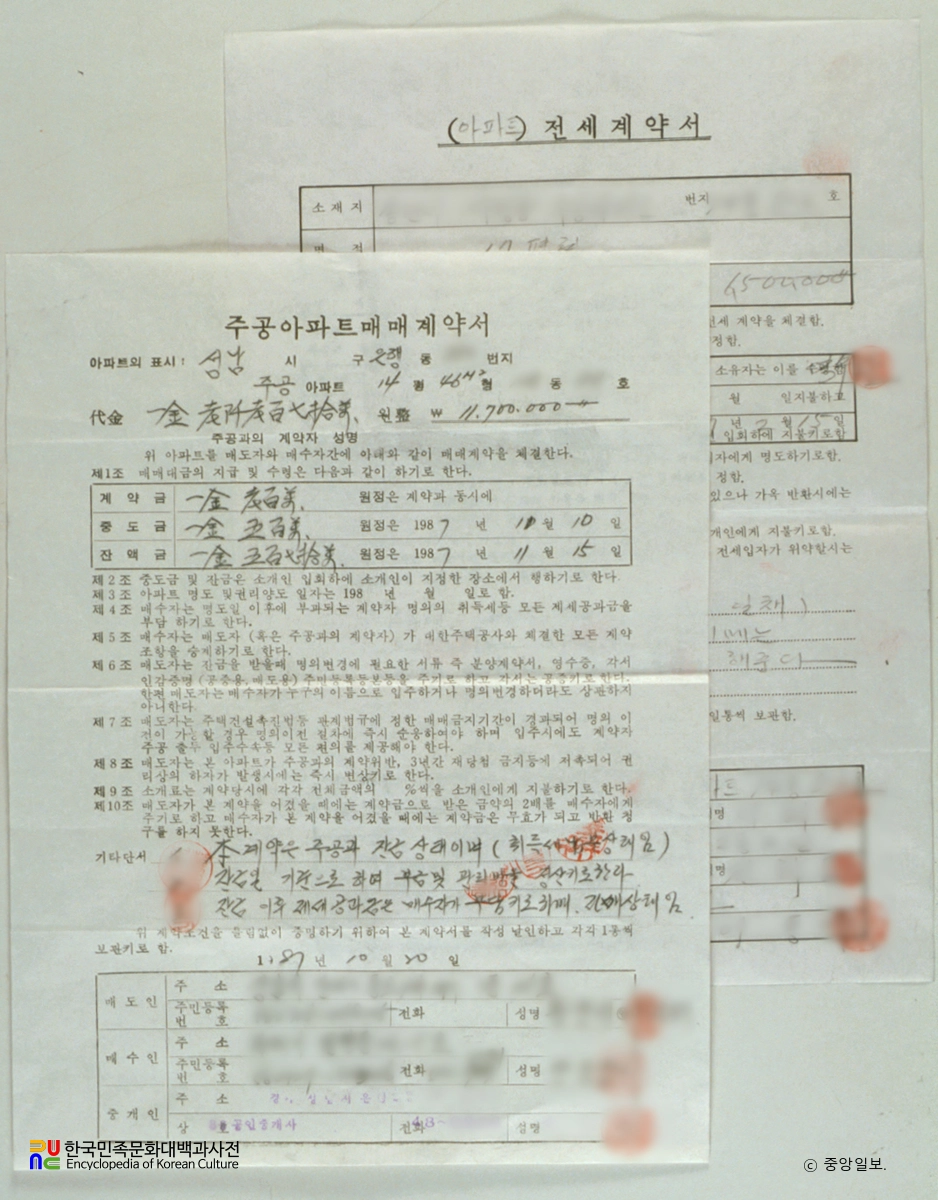 (아파트) 전세계약서
소재지 번지 호
면 적 17평형
6500000
전세 계약을 체결함.
정함.
소유자는 이를
월 일지불하고
년 2 월 15 일
입회하에 지불키로함
자에게 명도하기로함.
정함.
있으나 가옥 반환시에는
개인에게 지불키로함.
전세입자가 위약할시는
해준다
일통씩 보관함.
주공아파트매매계약서
아파트의 표시 : 성남 시 구 은행 동 번지
주공 아파트 14 평 46M² 형 동 호
代金 一金 壱阡壱百七拾萬 원整 ₩ 11.700.000
주공과의 계약자 성명
위 아파트를 매도자와 매수자간에 아래와 같이 매매계약을 체결한다.
제1조 매매대금의 지급 및 수령은 다음과 같이 하기로 한다.
계 약 금 一金 壱百萬. 원정은 계약과 동시에
중 도 금 一金 五百萬. 원정은 1987 년 11 월 10 일
잔 액 금 一金 五百七拾萬. 원정은 1987 년 11 월 15 일
제 2 조 중도금 및 잔금은 소개인 입회하에 소개인이 지정한 장소에서 행하기로 한다.
제 3 조 아파트 명도 및권리양도 일자는 198 년 월 일로 함.
제 4 조 매수자는 명도일 이후에 부과되는 계약자 명의의 취득세등 모든 제세공과금을
부담 하기로 한다.
제 5 조 매수자는 매도자 (혹은 주공과의 계약자) 가 대한주택공사와 체결한 모든 계약
조항을 승계하기로 한다.
제 6 조 매도자는 잔금을 받을때 명의변경에 필요한 서류 즉 분양계약서, 영수증, 각서
인감증명 (공증용, 매도용) 주민등록등본등을 주기로 하고 각서는 공증키로 한다.
한편 매도자는 매수자가 누구의 이름으로 입주하거나 명의변경하더라도 상관하지
아니한다.
제 7 조 매도자는 주택건설촉진법등 관계법규에 정한 매매금지기간이 경과되어 명의 이
전이 가능할 경우 명의이전 절차에 즉시 순응하여야 하며 입주시에도 계약자
주공 출두 입주수속등 모든 편의를 제공해야 한다.
제 8 조 매도자는 본 아파트가 주공과의 계약위반, 3년간 재당첨 금지등에 저촉되어 권
리상의 하자가 발생시에는 즉시 변상키로 한다.
제 9 조 소개료는 계약당시에 각각 전체금액의 %씩을 소개인에게 지불하기로 한다.
제10조 매도자가 본 계약을 어겼을 때에는 계약금으로 받은 금약의 2배를 매수자에게
주기로 하고 매수자가 본 계약을 어겼을 때에는 계약금은 무효가 되고 반환 청
구를 하지 못한다.
기타단서 本 계약은 주공과 잔금 상태이며 (취득세 상태임)
잔금일 기준으로 하여 부금및 관리비를 정산키로한다
잔금 이후 제세공과금은 매수자가 부담키로하며. 상태임.
위 계약조건을 틀림없이 증명하기 위하여 본 계약서를 작성 날인하고 각각 1통씩
보관키로 함.
1987 년 10 월 20 일
매 도 인 주 소
주민등록
번 호 전화 성명
매 수 인 주 소
주민등록
번 호 전화 성명
중 개 인 주 소
상 호 공인중개사 전화 43- 성명
한국민족문화대백과사전
Encyclopedia of Korean Culture
ⓒ 중앙일보.